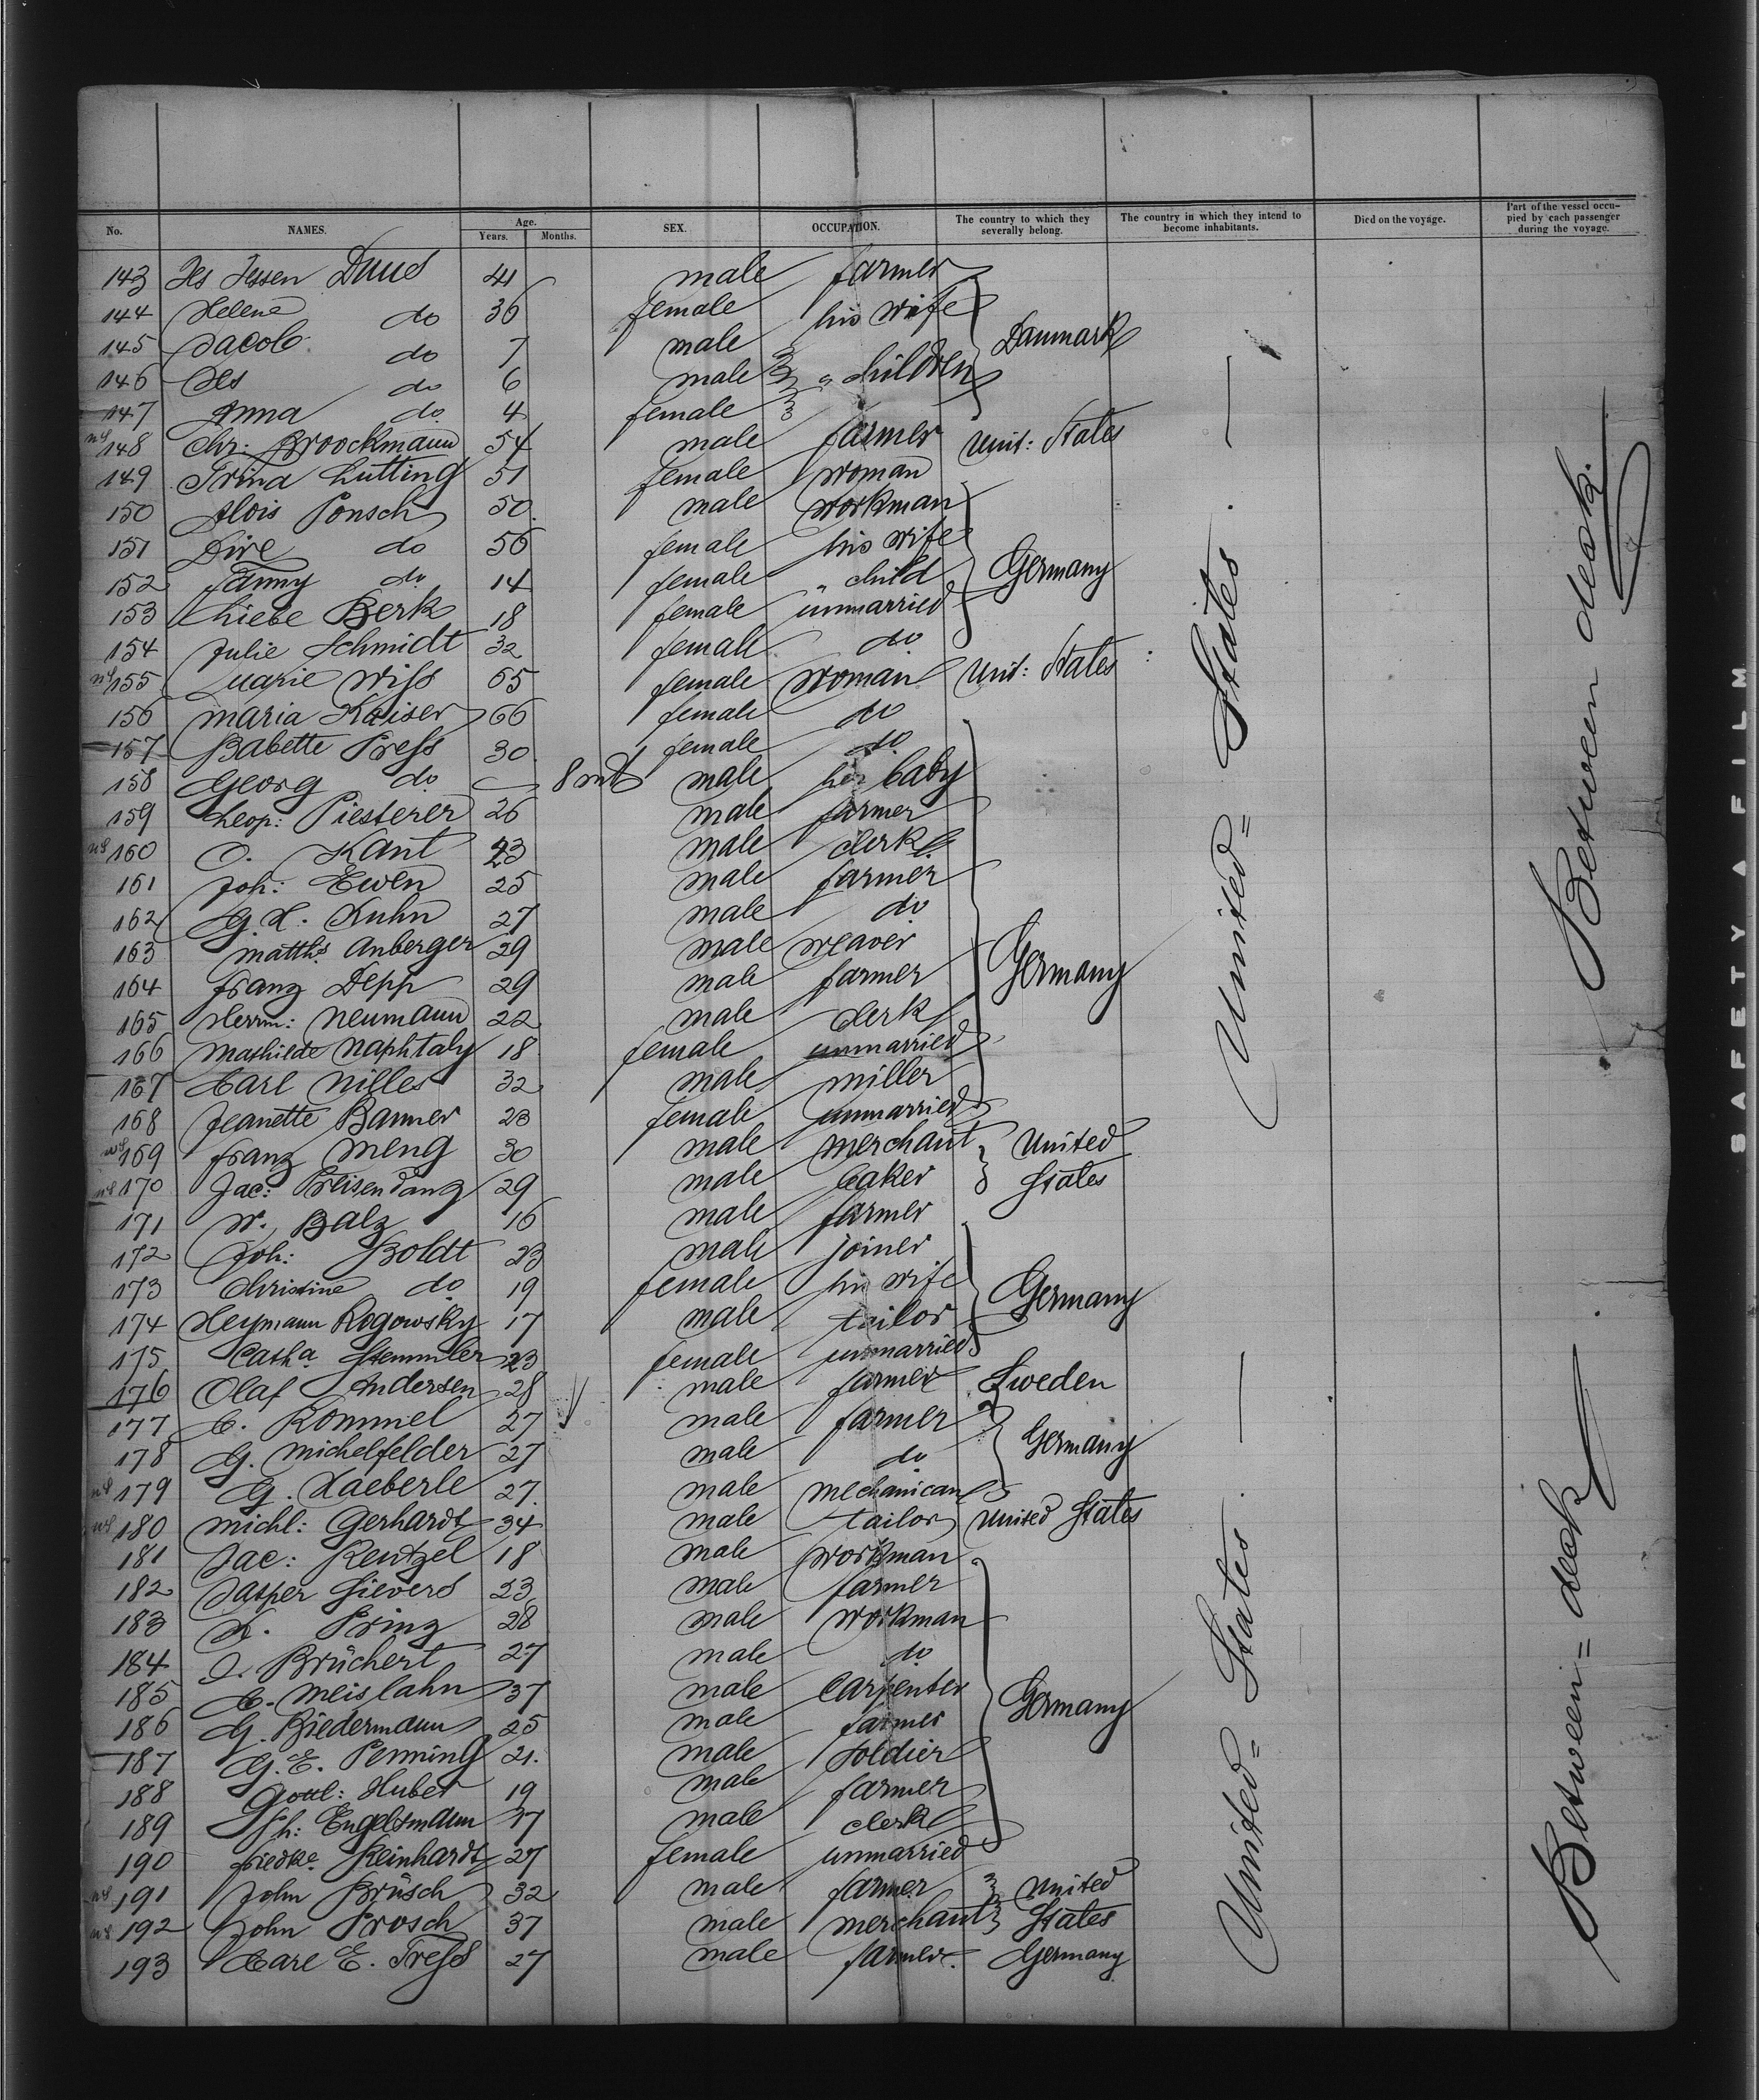 No. NAMES. Age. Years. Months. SEX. OCCUPATION. The country to which they severally belong. The country in which they intend to become inhabitants. Died on the voyage. Part of the vessel occupied by each passenger during the voyage.
143 Jes Jessen Duus 41 male farmer
144 Helene do 36 female his wife
145 Jacob do 7 male
146 Jes do 6 male " children Danmark
147 Anna do 4 female
148 Chr: Broockmann 54 male farmer Unit: States
149 Trina Lutting 51 female woman
150 Alois Ponsch 50 male workman
151 do 56 female his wife
152 Fanny do 14 female " child Germany
153 Liebe Berk 18 female unmarried
154 Julie Schmidt 32 female do
155 Marie Wiss 65 female woman Unit: States
156 Maria Kaiser 66 female do
157 Babette Press 30 female do
158 Georg do — 8 mts male her baby
159 Leop: Piesterer 26 male farmer
160 O. Kant male clerk
161 Joh: Ewen 25 male farmer
162 G. H. Kuhn 27 male do
163 Matths. Anberger 29 male weaver
164 Franz Depp 29 male farmer Germany
165 Herrm: Neumann 22 male clerk
166 Mathilde Naphtaly 18 female unmarried
167 Carl Nilles 32 male miller
168 Jeanette Banner 23 female unmarried
169 Franz Meng 30 male merchant United
170 Jac: Preisendanz 29 male baker States
171 W. Balz 16 male farmer
172 Joh: Boldt 23 male joiner
173 Christine do 19 female his wife Germany
174 Heymann Rogowsky 17 male tailor
175 Catha Stemmler 23 female unmarried
176 Olaf Andersen 28 male farmer Sweden
177 C. Rommel 27 male farmer
178 G. Michelfelder 27 male do Germany
179 G. Haeberle 27 male mechanican
180 Michl: Gerhardt 34 male tailor United States
181 Jac: Rentzel 18 male workman
182 Jasper Sievers 23 male farmer
183 H. Prinz 28 male workman
184 J. Brüchert 27 male do
185 C. Meislahn 37 male carpenter Germany
186 G. Biedermann 25 male farmer
187 G. E. Penning 21. male soldier
188 Gottl: Huber 19 male farmer
189 Engelsmann 17 male clerk
190 Friedke. Reinhardt 27 female unmarried
191 John Brüsch 32 male farmer United
192 John Prosch 37 male merchant States
193 Carl E. Tress 27 male farmer Germany
United= States. —
United= States. —
Between deck.
Between= deck
SAFETY A FILM